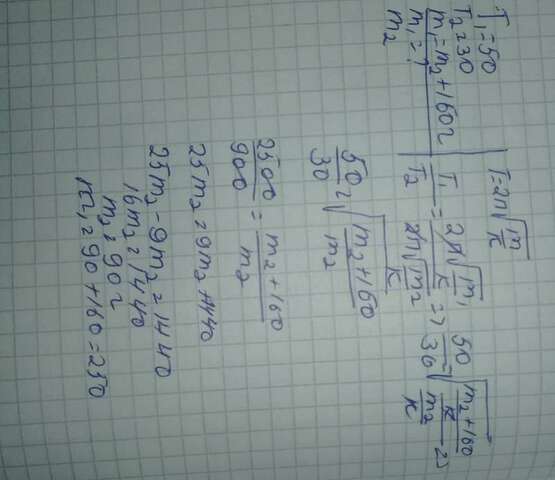 T₁=50
T₂=30
m₁=m₂+160г
m₁=?
m₂
T=2π√(m/k)
T₁/T₂ = 2π√(m₁/k) / 2π√(m₂/k) => 50/30 = √((m₂+160)/k / m₂/k) =>
50/30 = √((m₂+160)/m₂)
2500/900 = (m₂+160)/m₂
25m₂=9m₂+1440
25m₂-9m₂=1440
16m₂=1440
m₂=90г
m₁=90+160=250